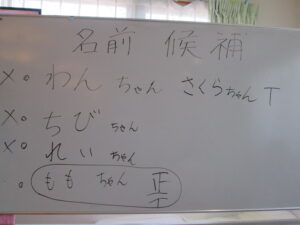 名前 候補
×。わんちゃん さくらちゃん T
×。ちびちゃん
×。れいちゃん
。ももちゃん 正T